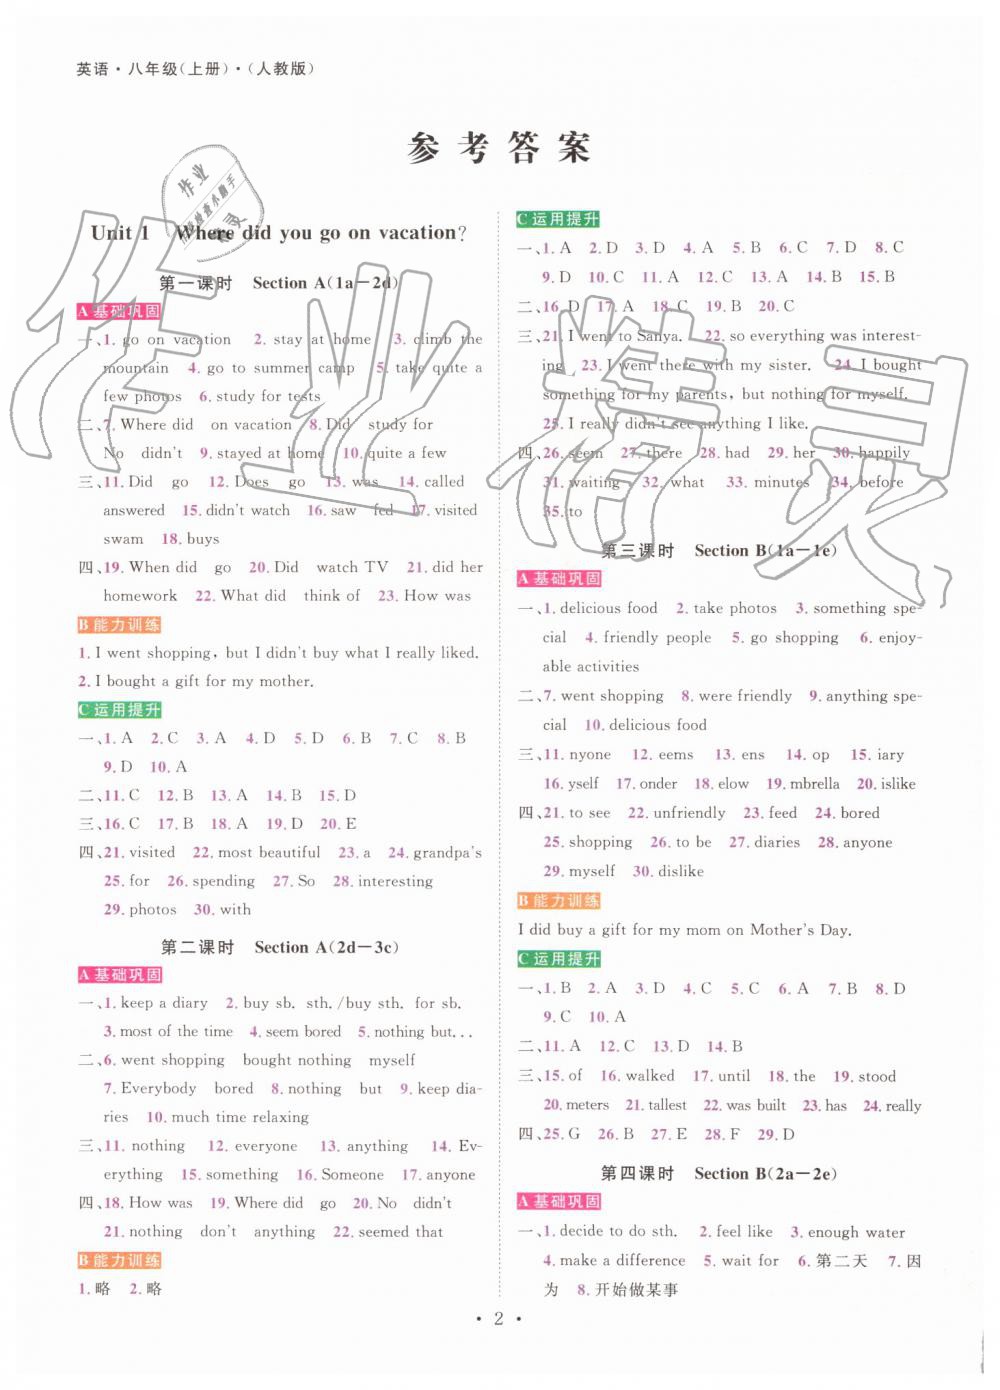 英语·八年级(上册)·(人教版)
参考答案
Unit 1 Where did you go on vacation?
第一课时 Section A(1a－2d)
A 基础巩固
一、1. go on vacation 2. stay at home 3. climb the
mountain 4. go to summer camp 5. take quite a
few photos 6. study for tests
二、7. Where did on vacation 8. Did study for
No didn't 9. stayed at home 10. quite a few
三、11. Did go 12. Does go 13. was 14. called
answered 15. didn't watch 16. saw fed 17. visited
swam 18. buys
四、19. When did go 20. Did watch TV 21. did her
homework 22. What did think of 23. How was
B 能力训练
1. I went shopping, but I didn't buy what I really liked.
2. I bought a gift for my mother.
C 运用提升
一、1. A 2. C 3. A 4. D 5. D 6. B 7. C 8. B
9. D 10. A
二、11. C 12. B 13. A 14. B 15. D
三、16. C 17. B 18. A 19. D 20. E
四、21. visited 22. most beautiful 23. a 24. grandpa's
25. for 26. spending 27. So 28. interesting
29. photos 30. with
第二课时 Section A(2d－3c)
A 基础巩固
一、1. keep a diary 2. buy sb. sth./buy sth. for sb.
3. most of the time 4. seem bored 5. nothing but...
二、6. went shopping bought nothing myself
7. Everybody bored 8. nothing but 9. keep dia-
ries 10. much time relaxing
三、11. nothing 12. everyone 13. anything 14. Ev-
erything 15. something 16. Someone 17. anyone
四、18. How was 19. Where did go 20. No didn't
21. nothing don't anything 22. seemed that
B 能力训练
1. 略 2. 略
C 运用提升
一、1. A 2. D 3. D 4. A 5. B 6. C 7. D 8. C
9. D 10. C 11. C 12. A 13. A 14. B 15. B
二、16. D 17. A 18. C 19. B 20. C
三、21. I went to Sanya. 22. so everything was interest-
ing 23. I went there with my sister. 24. I bought
something for my parents, but nothing for myself.
25. I really didn't see anything I like.
四、26. seem 27. there 28. had 29. her 30. happily
31. waiting 32. what 33. minutes 34. before
35. to
第三课时 Section B(1a－1e)
A 基础巩固
一、1. delicious food 2. take photos 3. something spe-
cial 4. friendly people 5. go shopping 6. enjoy-
able activities
二、7. went shopping 8. were friendly 9. anything spe-
cial 10. delicious food
三、11. nyone 12. eems 13. ens 14. op 15. iary
16. yself 17. onder 18. elow 19. mbrella 20. islike
四、21. to see 22. unfriendly 23. feed 24. bored
25. shopping 26. to be 27. diaries 28. anyone
29. myself 30. dislike
B 能力训练
I did buy a gift for my mom on Mother's Day.
C 运用提升
一、1. B 2. A 3. D 4. C 5. C 6. A 7. B 8. D
9. C 10. A
二、11. A 12. C 13. D 14. B
三、15. of 16. walked 17. until 18. the 19. stood
20. meters 21. tallest 22. was built 23. has 24. really
四、25. G 26. B 27. E 28. F 29. D
第四课时 Section B(2a－2e)
A 基础巩固
一、1. decide to do sth. 2. feel like 3. enough water
4. make a difference 5. wait for 6. 第二天 7. 因
为 8. 开始做某事
· 2 ·
作业精灵